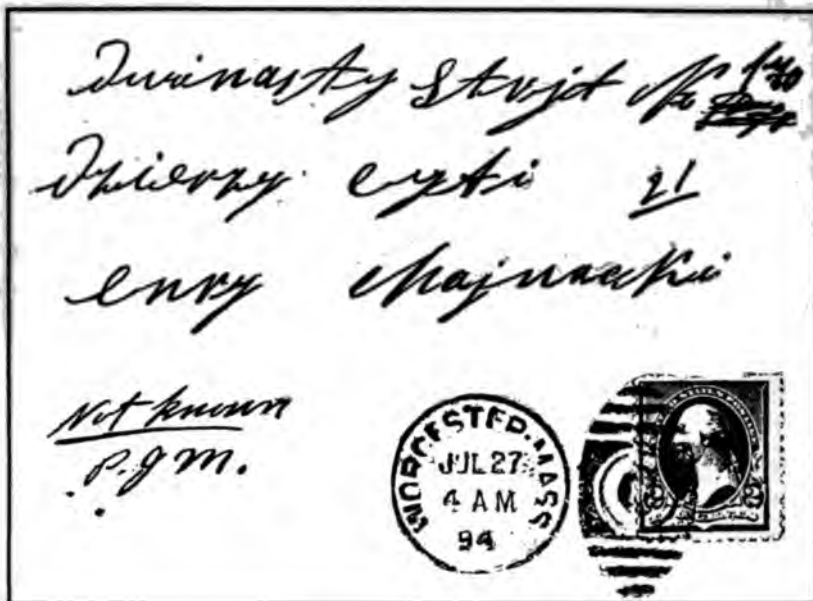 Dwinasty Strjt No
Dzierzy cyti 21
enry Majnacki
Not known
P.J.M.
WORCESTER, MASS
JUL 27
4 AM
94